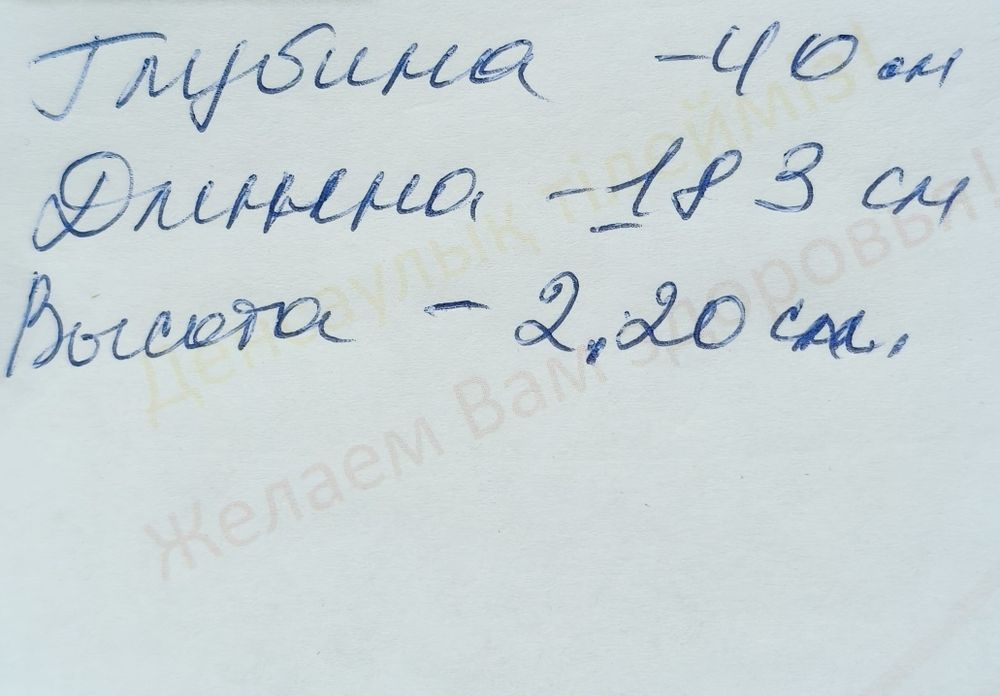 Глубина - 40 см
Длинна - 183 см
Высота - 2,20 см.
Денсаулық тілейміз!
Желаем Вам здоровья!